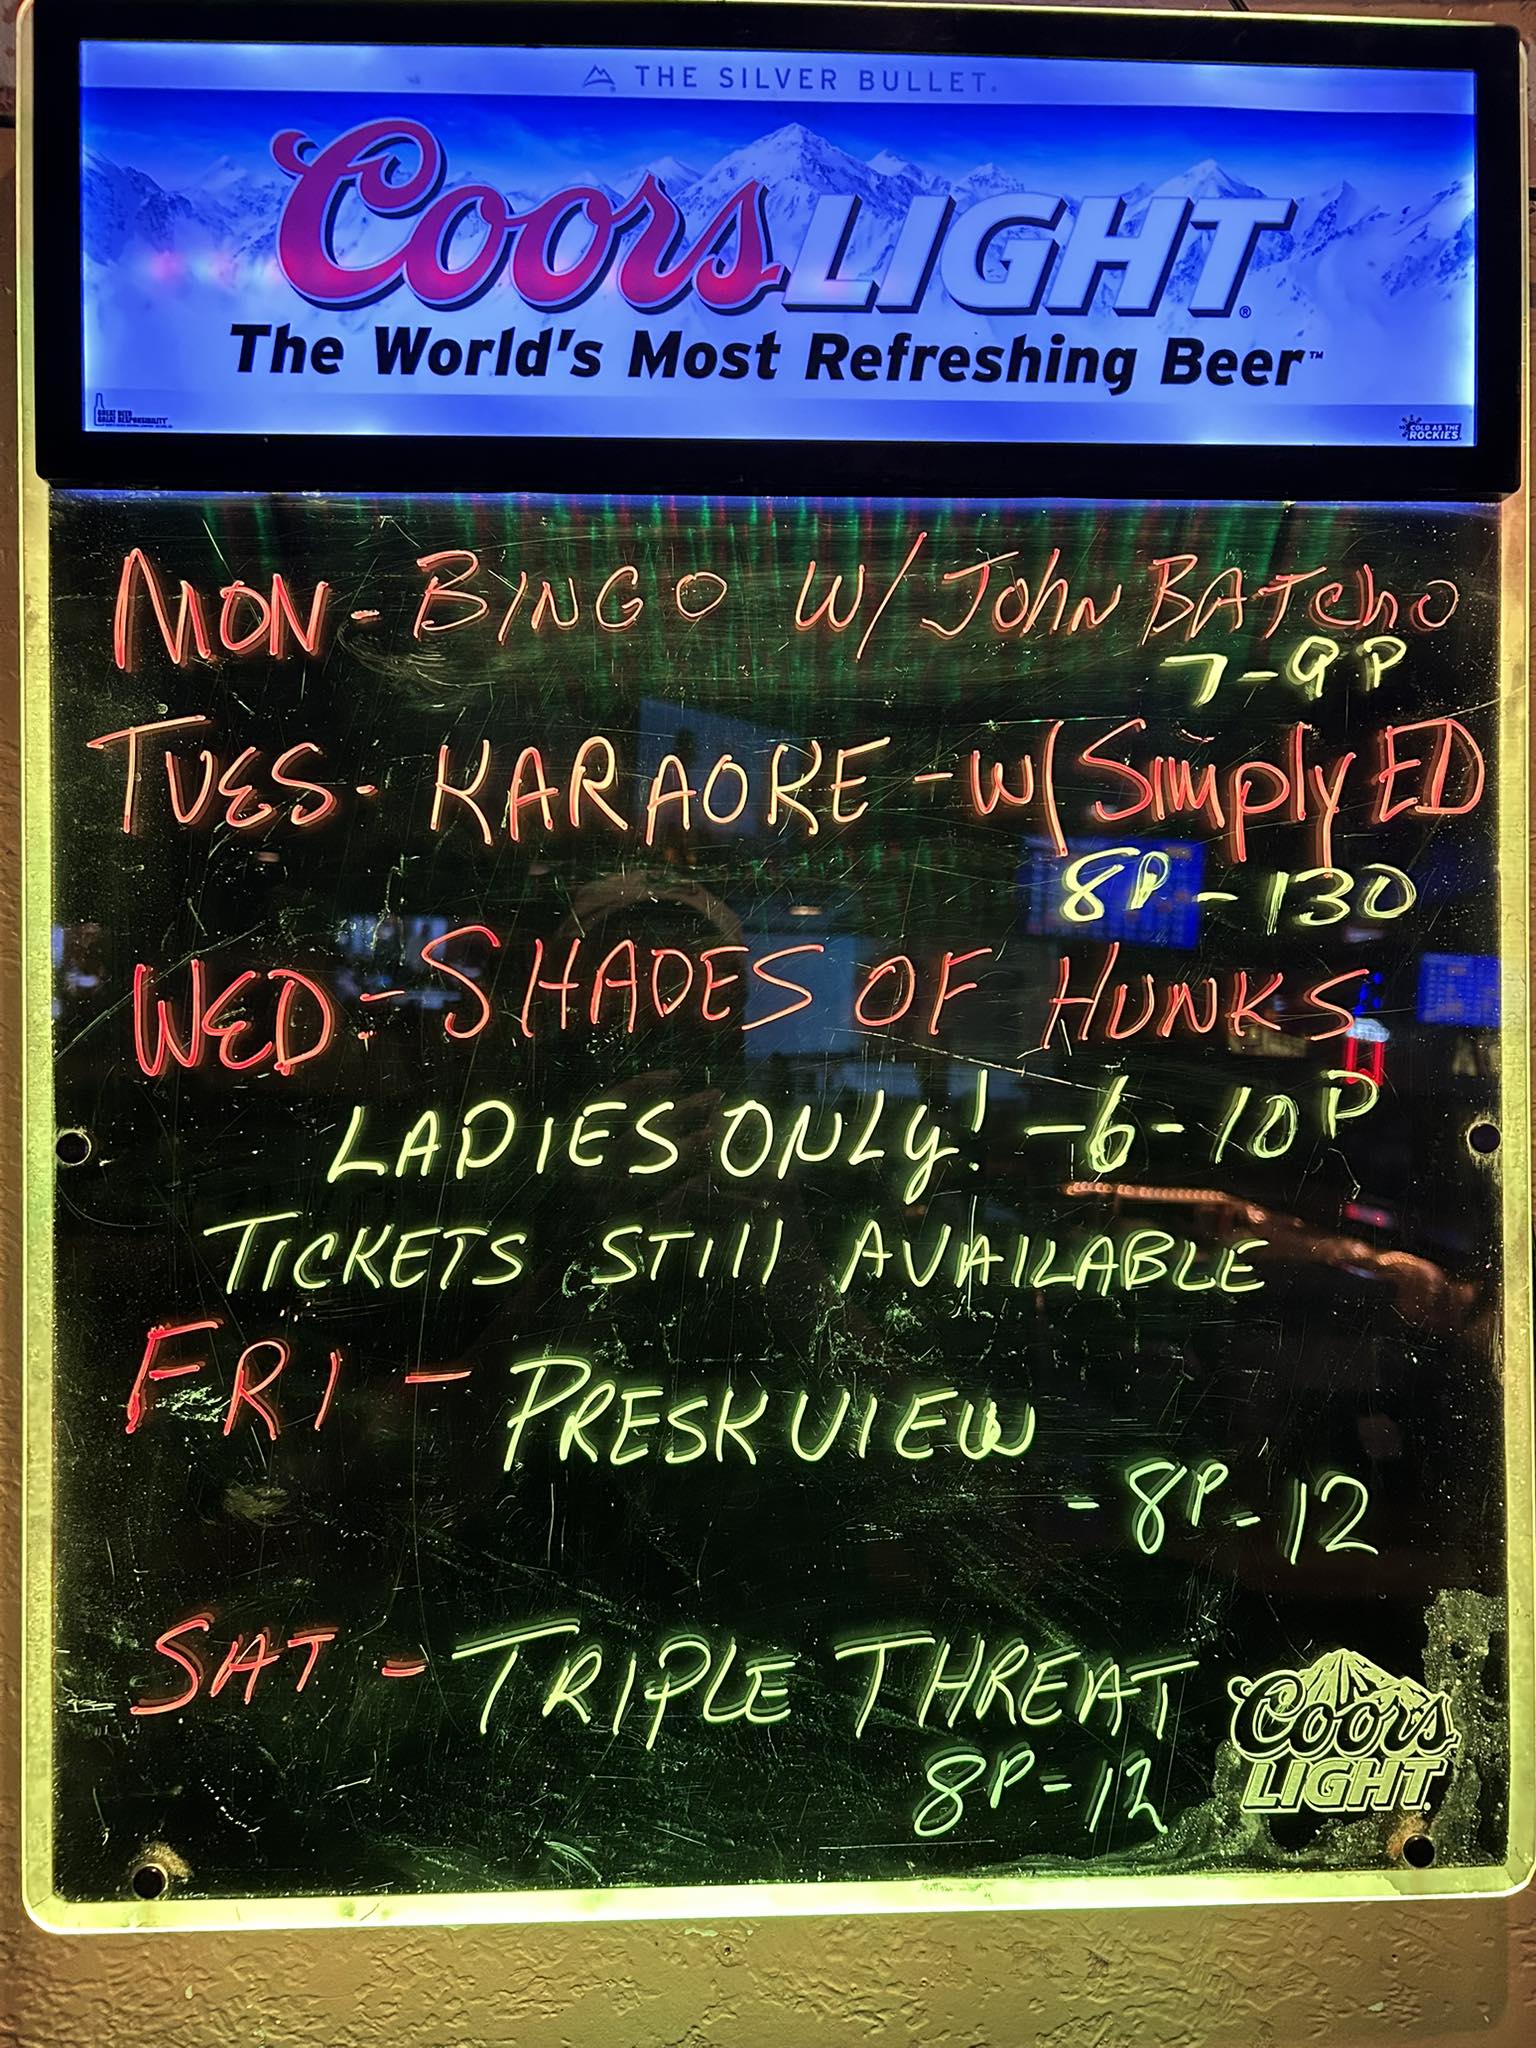 THE SILVER BULLET.
Coors LIGHT®
The World's Most Refreshing Beer™
GREAT BEER
GREAT RESPONSIBILITY
COLD AS THE
ROCKIES
MON - BINGO W/ John BATcho
7-9P
TUES - KARAOKE - W/ Simply ED
8P - 130
WED - SHADES OF HUNKS
LADIES ONLy! - 6-10P
TICKETS STill AVAILABLE
FRI - PRESKVIEW
- 8P - 12
SAT - TRIPLE THREAT
8P - 12
Coors
LIGHT